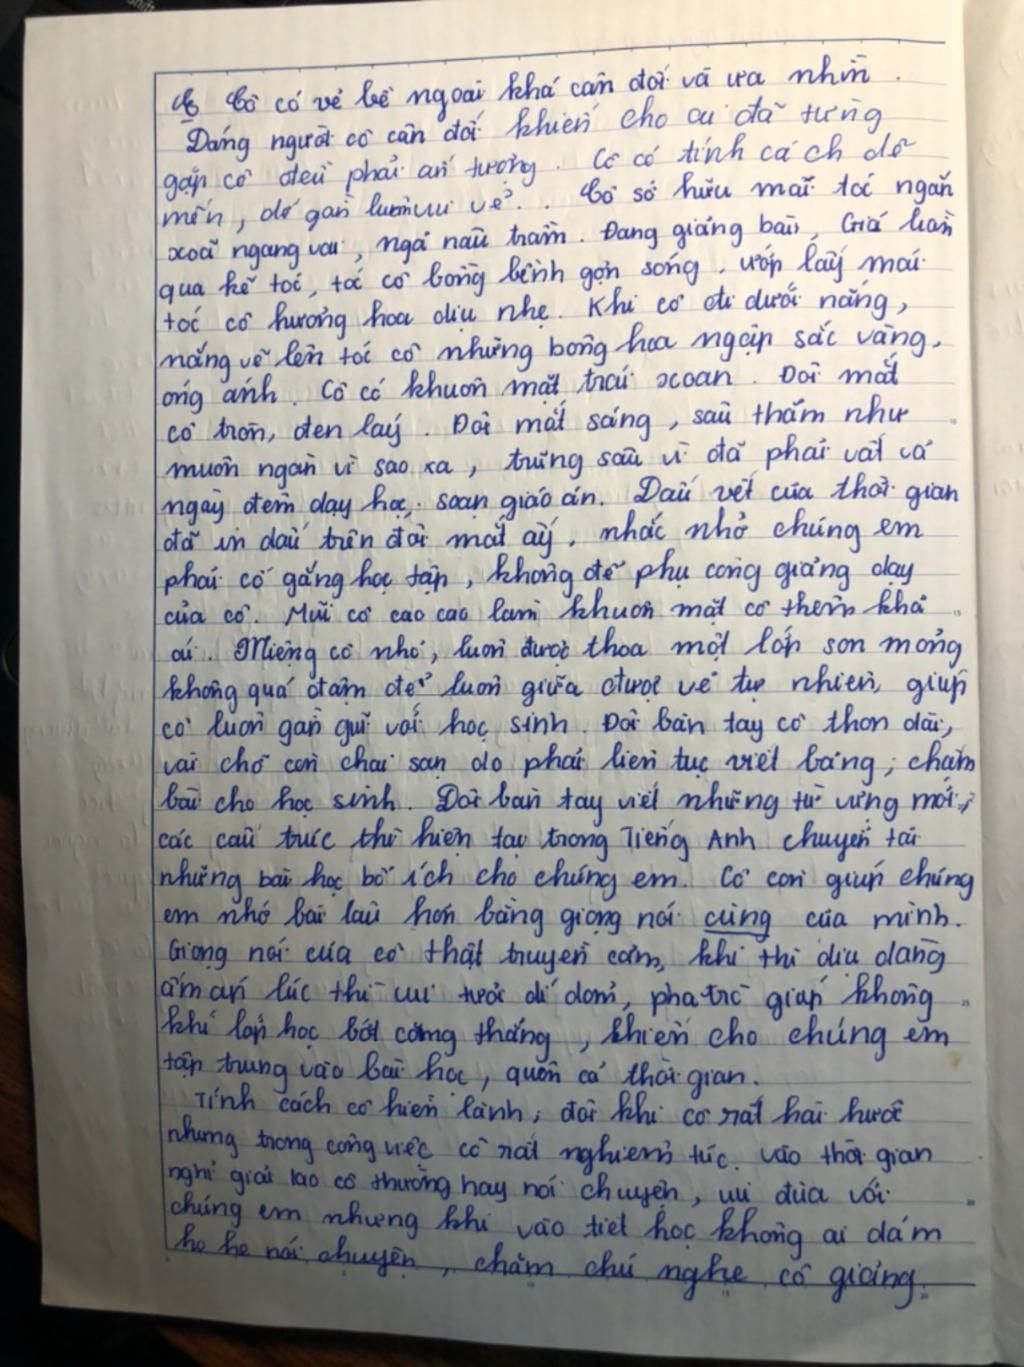 Cô có vẻ bề ngoài khá cân đối và ưa nhìn.
Dáng người cô cân đối khiến cho ai đã từng
gặp cô đều phải ấn tượng. Cô có tính cách dễ
mến, dễ gần luôn vui vẻ. Cô sở hữu mái tóc ngắn
xoã ngang vai, ngả nâu trầm. Đang giảng bài, Gió luồn
qua kẽ tóc, tóc cô bồng bềnh gợn sóng, ướp lấy mái
tóc cô hương hoa dịu nhẹ. Khi cô đi dưới nắng,
nắng vẽ lên tóc cô những bông hoa ngập sắc vàng,
óng ánh. Cô có khuôn mặt trái xoan. Đôi mắt
cô tròn, đen láy. Đôi mắt sáng, sâu thẳm như
muôn ngàn vì sao xa, trũng sâu vì đã phải vất vả
ngày đêm dạy học, soạn giáo án. Dấu vết của thời gian
đã in dấu trên đôi mắt ấy, nhắc nhở chúng em
phải cố gắng học tập, không để phụ công giảng dạy
của cô. Mũi cô cao cao làm khuôn mặt cô thêm khả
ái. Miệng cô nhỏ, luôn được thoa một lớp son mỏng
không quá đậm để luôn giữa được vẻ tự nhiên, giúp
cô luôn gần gũi với học sinh. Đôi bàn tay cô thon dài,
vài chỗ còn chai sạn do phải liên tục viết bảng, chấm
bài cho học sinh. Đôi bàn tay viết những từ vựng mới,
các cấu trúc thì hiện tại trong Tiếng Anh chuyển tải
những bài học bổ ích cho chúng em. Cô còn giúp chúng
em nhớ bài lâu hơn bằng giọng nói cùng của mình.
Giọng nói của cô thật truyền cảm, khi thì dịu dàng
ấm áp lúc thì vui tươi dí dỏm, pha trò giúp không
khí lớp học bớt căng thẳng, khiến cho chúng em
tập trung vào bài học, quên cả thời gian.
Tính cách cô hiền lành, đôi khi cô rất hài hước
nhưng trong công việc cô rất nghiêm túc. vào thời gian
nghỉ giải lao cô thường hay nói chuyện, vui đùa với
chúng em nhưng khi vào tiết học không ai dám
ho he nói chuyện, chăm chú nghe cô giảng.